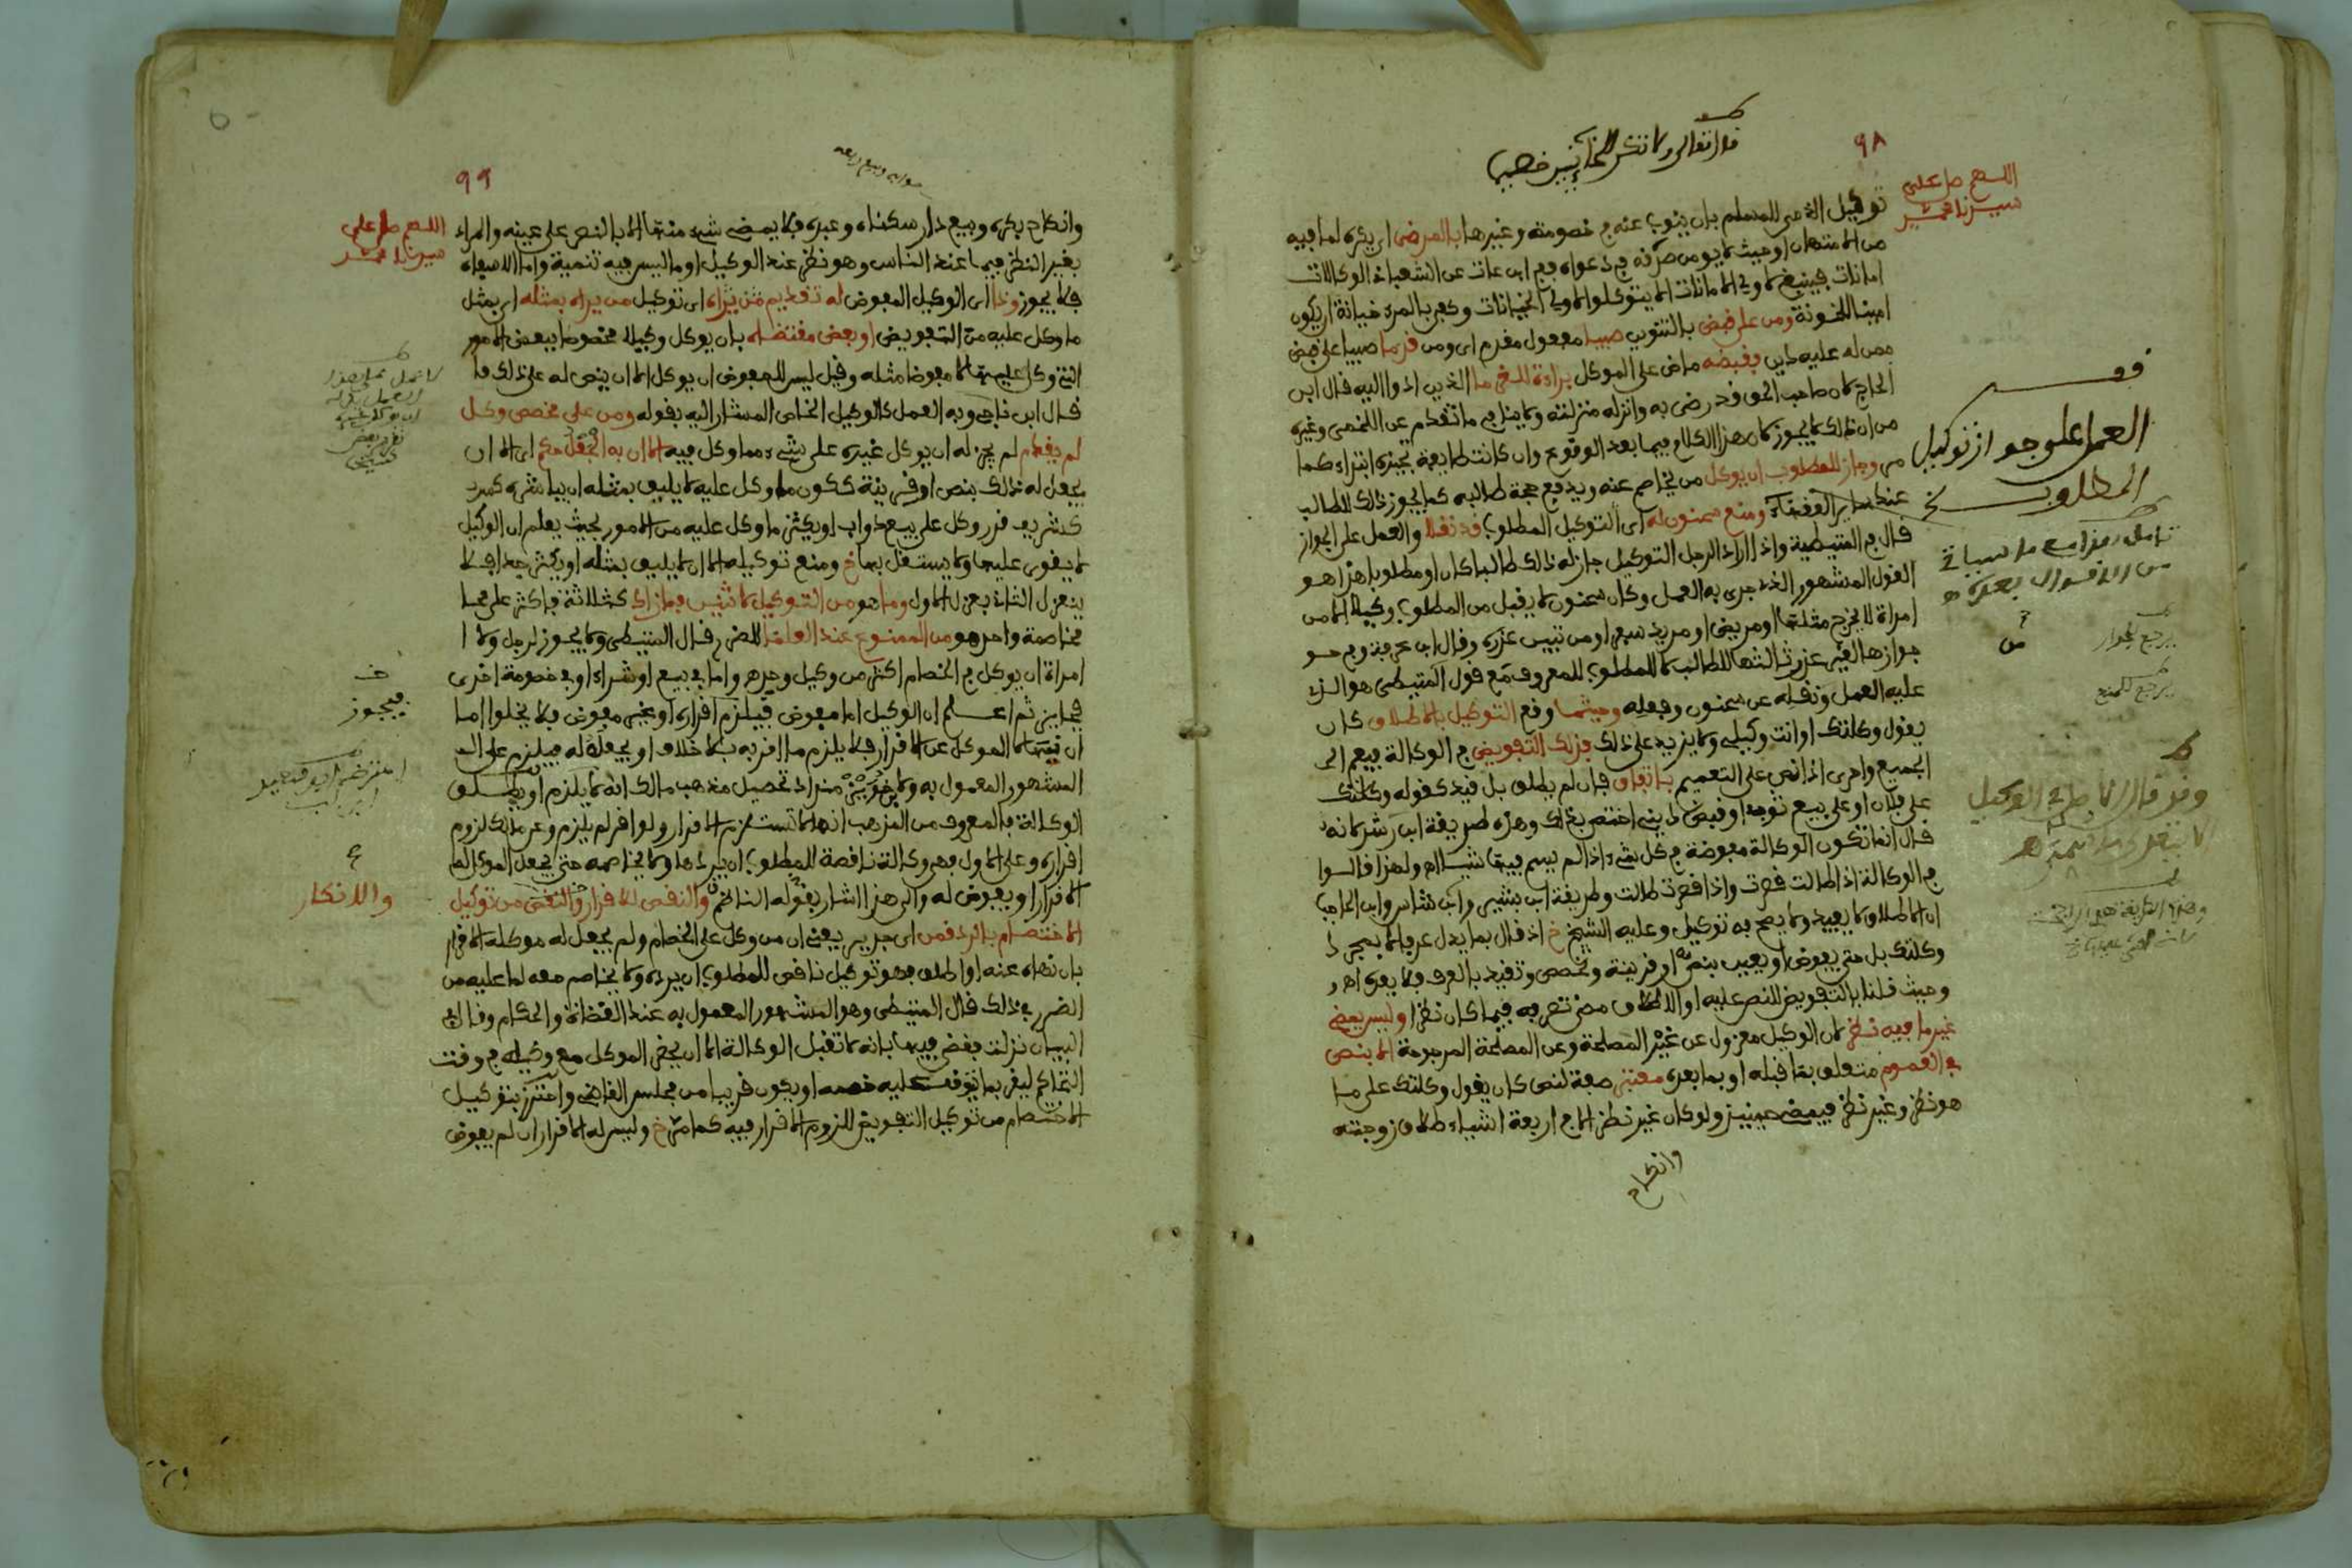 قال تعالى ولا تكن للخائنين خصيما
٩٨
اللهم صل على
سيدنا محمد
توكيل الذمي للمسلم بان ينوب عنه في خصومة وغيرها بالمرضي اي يكره لما فيه
من الامتهان او حيث لا يومن مكره في دعواه ففي ابن عات عن الشعباني الوكالات
امانات فينبغي لاولي الامانات الا يتوكلوا لاولي الخيانات وكفى بالمرء خيانة ان يكون
امينا للخونة ومن على قبض بالتنوين صبيا مفعول مقدم اي ومن قدما صبيا على قبض
ممن له عليه دين فقبضه ماض على الموكل براءة للغريم ما الذين اذوا اليه قال ابن
الحاج لان صاحب الحق قد رضي به وانزله منزلته ولا ينافي ما تقدم عن اللخمي وغيره
من ان ذلك لا يجوز لان هذا الكلام فيما بعد الوقوع وان كانت طايفة تجيزه ابتداء كما
مر وجاز للمطلوب ان يوكل من يخاصم عنه ويدفع حجة طالبه كما يجوز ذلك للطالب
عند ساير الفقهاء ومنع سحنون له اي التوكيل المطلوب قد نقلا والعمل على الجواز
قال في المتيطية واذا اراد الرجل التوكيل جاز له ذلك طالبا كان او مطلوبا هذا هو
القول المشهور الذي جرى به العمل وكان سحنون لا يقبل من المطلوب وكيلا الا من
امراة لا يخرج مثلها او مريض او مريد سفر او من تبين عذره وقال ابن عرفة وفي
جوازها لغير عذر ثالثها للطالب لا للمطلوب للمعروف مع قول المتيطي هو الذي
عليه العمل ونقله عن سحنون وفعله وحيثما وقع التوكيل بالاطلاق كان
يقول وكلتك او انت وكيلي ولا يزيد على ذلك فذلك التفويض في الوكالة فيعم الى
الجميع واحرى اذا نص على التعميم باتفاق فان لم يطلق بل قيد كقوله وكلتك
على فلان او على بيع ثوبي او قبض ديني اختص بذلك وهذه طريقة ابن رشد لانه
قال انما تكون الوكالة مفوضة في كل شيء اذا لم يسم فيها شيئا اهـ ولهذا قالوا
في الوكالة اذا طالت قصرت واذا قصرت طالت وطريقة ابن بشير وابن شاس وابن الحاجب
ان الاطلاق لا يفيد ولا يصح به توكيل وعليه الشيخ خ اذ قال بما يدل عرفا لا بمجرد
وكلتك بل حتى يفوض او يعين بنص او قرينة وتخصص وتقيد بالعرف فلا يعده اهـ
وحيث قلنا بالتفويض للنص عليه او الاطلاق مضى تصرفه فيما كان نظرا وليس يمضي
غير ما فيه نظر لان الوكيل معزول عن غير المصلحة وعن المصلحة المرجوحة الا بنص
في العموم متعلق بما قبله او بما بعده معتبر صفة لنص كان يقول وكلتك على ما
هو نظر وغير نظر فيمضي حينئذ ولو كان غير نظر الا في اربعة اشياء طلاق زوجته
وانكاح
قف
العمل على جواز توكيل
المطلوب
تامل هذا مع ما سياتي
من الاقوال بعده
يرجع للجواز
يرجع للمنع
٩٩
اللهم صل على
سيدنا محمد
وانكاح بكره وبيع دار سكناه وعبده فلا يمضي شيء منها الا بالنص على عينه والمراد
بغير النظر فيما عند الناس وهو نظر عند الوكيل او ما ليس فيه تنمية واما الاسفاه
فلا يجوز وذا اي الوكيل المفوض له تقديم من يراه اي توكيل من يراه بمثله اي بمثل
ما وكل عليه من التفويض او بعض مقتضاه بان يوكل وكيلا مخصوصا ببعض الامور
التي وكل عليها لا مفوضا مثله وقيل ليس للمفوض ان يوكل الا ان ينص له على ذلك
قال ابن ناجي وبه العمل كالوكيل الخاص المشار اليه بقوله ومن على مخصص وكل
لم يقدم لم يجز له ان يوكل غيره على شيء مما وكل فيه الا ان به الجعل حكم اي الا ان
يجعل له ذلك بنص او قرينة ككون ما وكل عليه لا يليق بمثله ان يباشره كبيرا
كشريف قدر وكل على بيع دواب او يكثر ما وكل عليه من الامور بحيث يعلم ان الوكيل
لا يقوى عليها ولا يستقل بها خ ومنع توكيله الا ان لا يليق بمثله او يكثر جدا فلا
ينعزل الثاني بعزل الاول وما هو من التوكيل لاثنين فما زاد كثلاثة فاكثر على
مخاصمة واحد هو من الممنوع عند العلما للضرر قال المتيطي ولا يجوز لرجل ولا
امراة ان يوكل في الخصام اكثر من وكيل واحد واما في بيع او شراء او في خصومة اخرى
فجايز ثم اعلم ان الوكيل اما مفوض فيلزم اقراره او غير مفوض فلا يخلوا اما
ان ينهاه الموكل عن الاقرار فلا يلزم ما اقر به بلا خلاف او يجعله له فيلزم على
المشهور المعمول به ولابن خويز منداد تحصيل مذهب مالك انه لا يلزم او يطلق
الوكالة فالمعروف من المذهب انها لا تستلزم الاقرار ولو اقر لم يلزم وعن مالك لزوم
اقراره وعلى الاول فهي وكالة ناقصة للمطلوب ان يردها ولا يخاصمه حتى يجعل الموكل له
الاقرار او يفوض له والى هذا اشار بقوله الناظم والنقص للاقرار والنقص من توكيل
الاختصام بالرد قمن اي جدير يعني ان من وكل على الخصام ولم يجعل له موكله الاقرار
بان نهاه عنه او اطلق فهو توكيل ناقص للمطلوب ان يرده ولا يخاصم معه لما عليه من
الضرر في ذلك قال المتيطي وهو المشهور المعمول به عند القضاة والحكام وقال في
البيان نزلت فقضي فيها بانه لا تقبل الوكالة الا ان يحضر الموكل مع وكيله في وقت
التحاكم ليقر بما يوقفه عليه خصمه او يكون قريبا من مجلس القاضي واحترز بتوكيل
الاختصام من توكيل التفويض للزوم الاقرار فيه كما مر خ وليس له الاقرار ان لم يفوض
فيجوز
والانكار